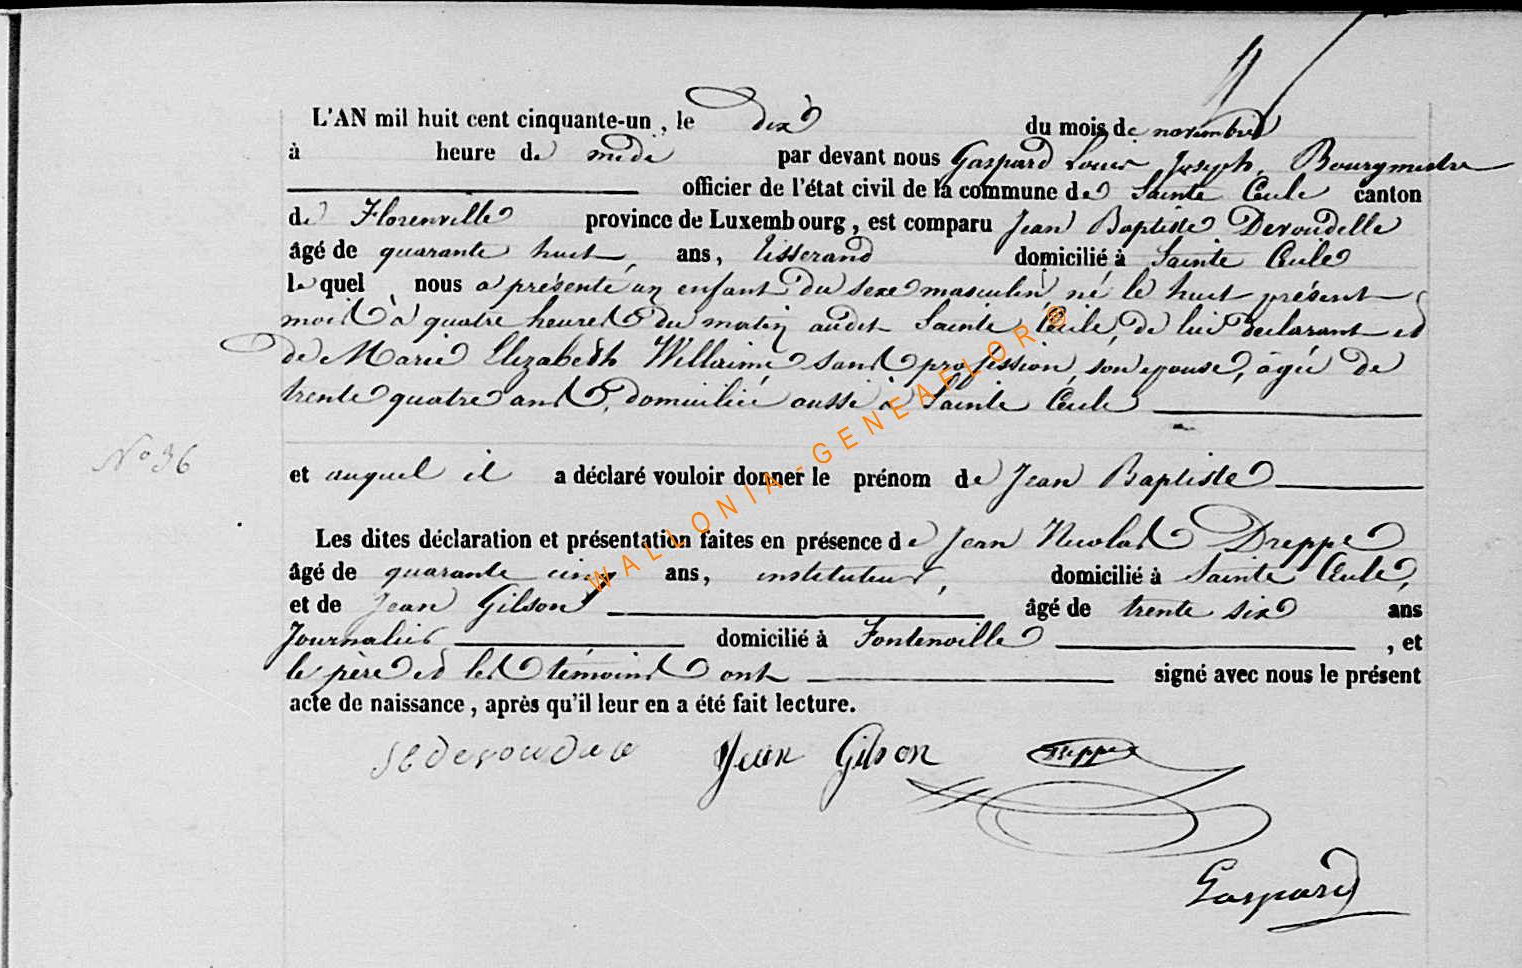 L'AN mil huit cent cinquante-un, le dix du mois de novembre
à heure de midi par devant nous Gaspard Louis Joseph, Bourgmestre
officier de l'état civil de la commune de Sainte Cécile canton
de Florenville province de Luxembourg, est comparu Jean Baptiste Devoudelle
âgé de quarante huit, ans, tisserand domicilié à Sainte Cécile
le quel nous a présenté un enfant du sexe masculin né le huit présent
mois à quatre heures du matin audit Sainte Cécile, de lui déclarant et
de Marie Elizabeth Willaime sans profession, son epouse, âgée de
trente quatre ans, domiciliée aussi à Sainte Cécile
No 36
et auquel il a déclaré vouloir donner le prénom de Jean Baptiste
Les dites déclaration et présentation faites en présence de Jean Nicolas Dreppe
âgé de quarante cinq ans, instituteur, domicilié à Sainte Cécile,
et de Jean Gilson âgé de trente six ans
Journalier domicilié à Fontenoille, et
le père et les témoins ont signé avec nous le présent
acte de naissance, après qu'il leur en a été fait lecture.
Jean Gilson Dreppe
Gaspard
WALLONIA-GENEAFLOR®